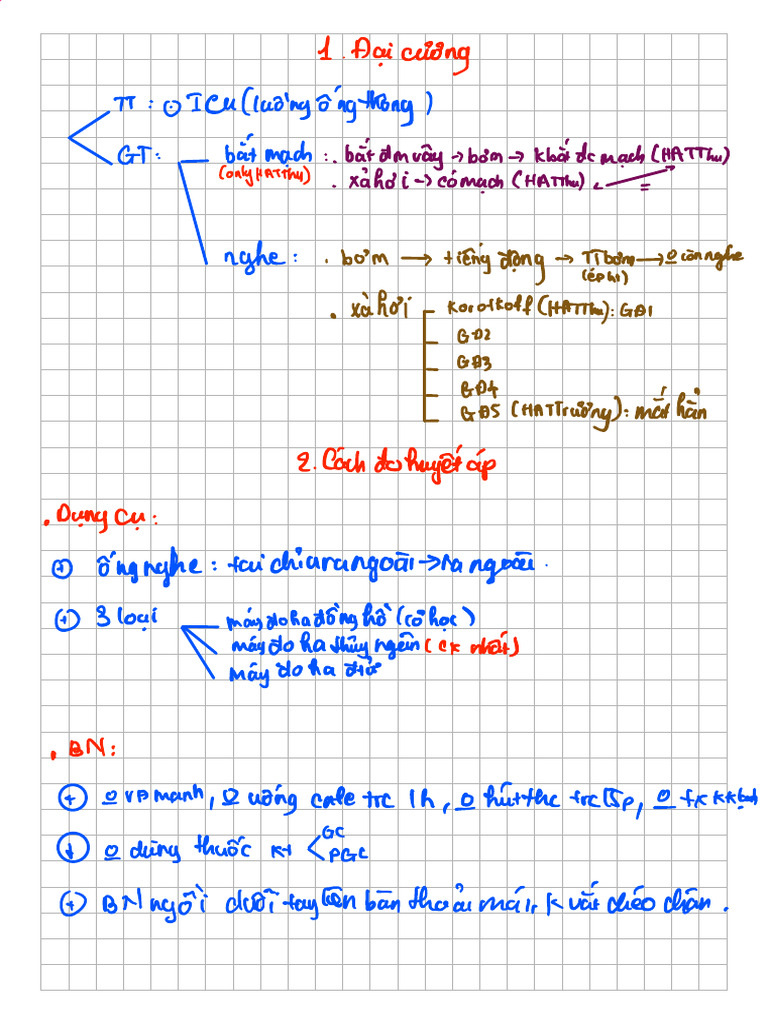 1. Đại cương
TT : ⊙ ICU (luồng ống thông)
GT: bắt mạch : . bắt đm vây → bơm → khbắt đc mạch (HATThu)
(only HATThu) . xả hơi → có mạch (HATThu) =
nghe : . bơm → tiếng động → TT bơm → 0 còn nghe
(ép hs)
. xả hơi Korotkoff (HATThu): GĐ1
GĐ2
GĐ3
GĐ4
GĐ5 (HATTrương): mất hẳn
2. Cách đo huyết áp
. Dụng cụ :
+ ống nghe : tai chĩa ra ngoài → ra ngoài .
+ 3 loại máy đo ha đồng hồ (cơ học)
máy đo ha thủy ngân (cx nhất)
máy đo ha điử
. BN:
+ 0 VĐ mạnh, 0 uống cafe trc 1h, 0 hút thc trc 15p, 0
+ 0 dùng thuốc kt GC
PGC
+ BN ngồi duỗi tay lên bàn thoải mái, k vắt chéo chân .